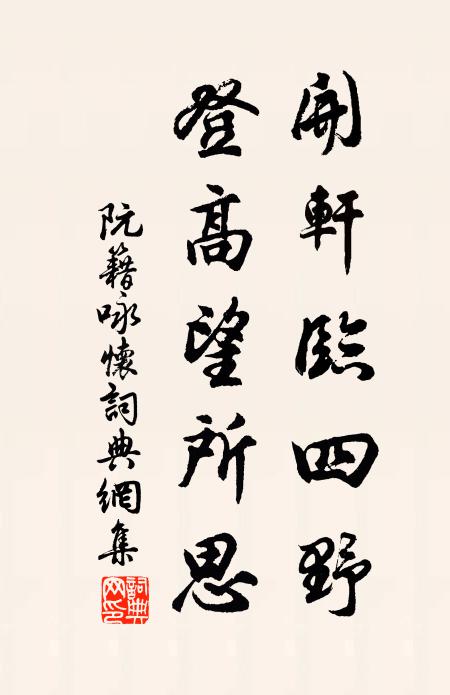 開軒臨四野
登高望所思
阮籍咏懷詞典網集
詞典
网印